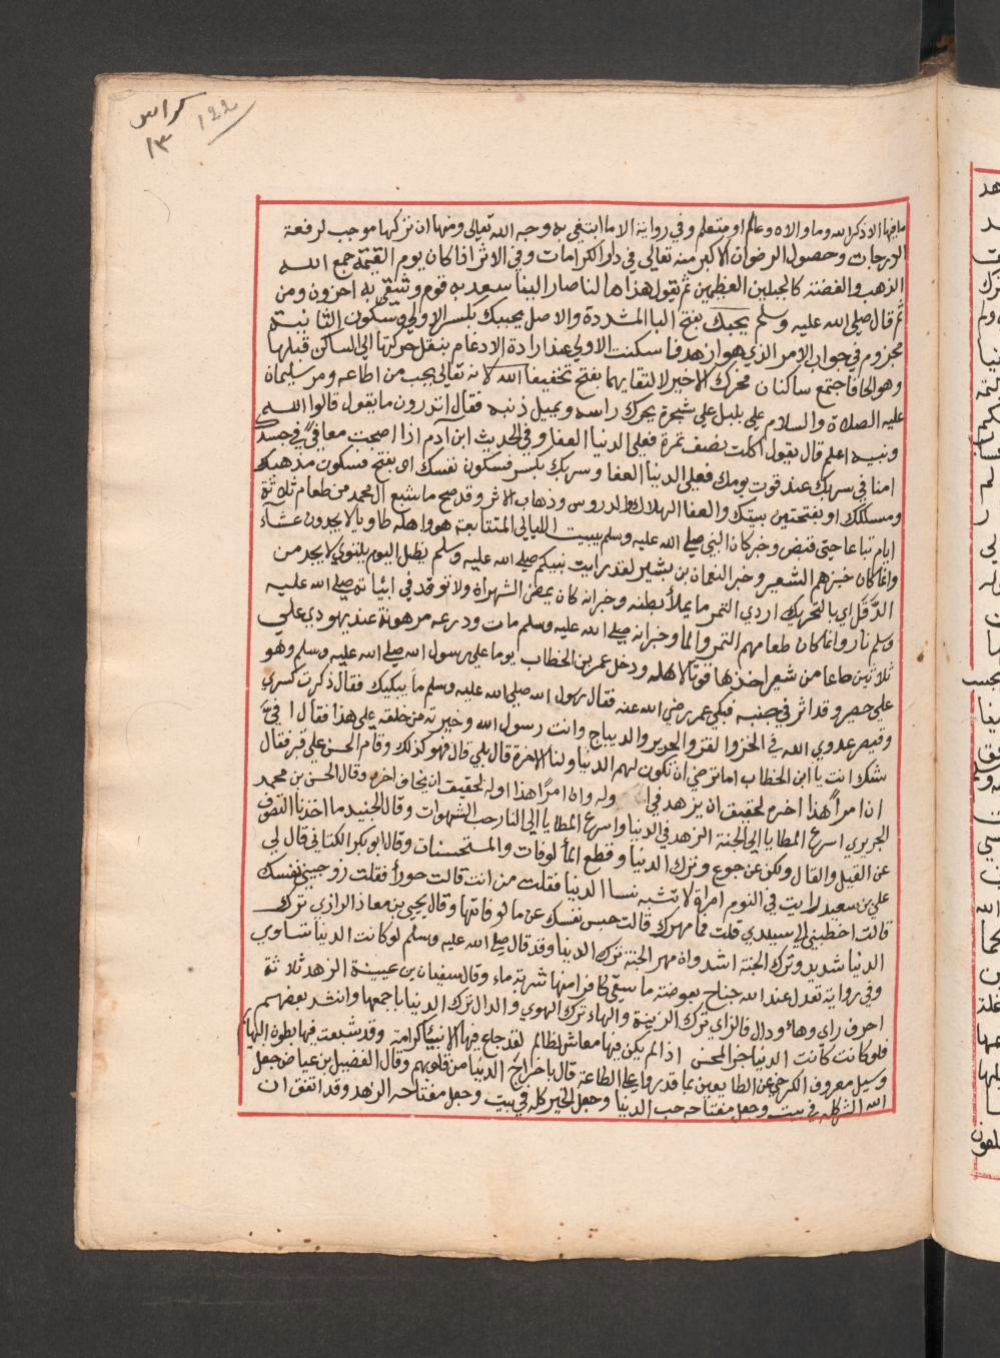 كراس
١٣
١٢٢
ما فيها الا ذكر الله وما والاه وعالم او متعلم وفي رواية الا ما ابتغي به وجه الله تعالى ومنها ان تركها موجب لرفعة
الدرجات وحصول الرضوان الاكبر منه تعالى في دار الكرامات وفي الاثر اذا كان يوم القيمة جمع الله
الذهب والفضة كالجبلين العظيمين ثم يقول هذا ما لنا صار الينا سعد به قوم وشقي به اخرون ومن
ثم قال صلى الله عليه وسلم يحبك بفتح البا المشددة والاصل يحببك بكسر الاولى وسكون الثانية
مجزوم في جواب الامر الذي هو ازهد فاسكنت الاولى عند ارادة الادغام بنقل حركتها الى الساكن قبلها
وهو الحا فاجتمع ساكنان فحرك الاخير لالتقايهما بفتح تخفيفا الله لانه تعالى يحب من اطاعه ومر سليمان
عليه الصلاة والسلام على بلبل على شجرة يحرك راسه ويميل ذنبه فقال اتدرون ما يقول قالوا الله
ونبيه اعلم قال يقول اكلت نصف تمرة فعلى الدنيا العفا وفي الحديث ابن آدم اذا اصبحت معافى في جسدك
امنا في سربك عندك قوت يومك فعلى الدنيا العفا وسربك بكسر فسكون نفسك او بفتح فسكون مذهبك
ومسلكك او بفتحتين بيتك والعفا الهلاك والدروس وذهاب الاثر وقد صح ما شبع ال محمد من طعام ثلاثة
ايام تباعا حتى قبض وخبر كان النبي صلى الله عليه وسلم يبيت الليالي المتتابعة هو واهله طاويا لا يجدون عشاء
وانما كان خبزهم الشعير وخبر النعمان بن بشير لقد رايت نبيكم صلى الله عليه وسلم يظل اليوم يلتوي لا يجد من
الدقل اي بالتحريك اردي التمر ما يملأ بطنه وخبر انه كان يمضي الشهر اة ولا توقد في ابياته صلى الله عليه
وسلم نار وانما كان طعامهم التمر والما وخبر انه صلى الله عليه وسلم مات ودرعه مرهونة عند يهودي على
ثلاثين صاعا من شعير اخذها قوتا لاهله ودخل عمر بن الخطاب يوما على رسول الله صلى الله عليه وسلم وهو
على حصير وقد اثر في جنبه فبكى عمر رضي الله عنه فقال رسول الله صلى الله عليه وسلم ما يبكيك فقال ذكرت كسري
وقيصر عدوي الله في الخز والقز والحرير والديباج وانت رسول الله وخيرته من خلقه على هذا فقال افي
شك انت يا ابن الخطاب اما ترضى ان تكون لهم الدنيا ولنا الاخرة قال بلى قال فهو كذلك وقام الحسن على قبر فقال
ان امرأ هذا اخره لحقيق ان يزهد في اوله وان امرًا هذا اوله لحقيق ان يخاف اخره وقال الحسن بن محمد
الجريري اسرع المطايا الى الجنة الزهد في الدنيا واسرع المطايا الى النار حب الشهوات وقال الجنيد ما اخذنا التصوف
عن القيل والقال ولكن عن جوع وترك الدنيا وقطع المألوفات والمستحسنات وقال ابو بكر الكتاني قال لي
علي بن سعيد رايت في النوم امراة لا تشبه نسا الدنيا فقلت من انت قالت حورأ فقلت زوجيني نفسك
قالت اخطبني الى سيدي قلت فما مهرك قالت حبس نفسك عن مالوفاتها وقال يحيى بن معاذ الرازي ترك
الدنيا شديد وترك الجنة اشد وان مهر الجنة ترك الدنيا وقد قال صلى الله عليه وسلم لو كانت الدنيا تساوي
وفي رواية تعدل عند الله جناح بعوضة ما سقى كافرا منها شربة ماء وقال سفيان بن عيينة الزهد ثلاثة
احرف زاي وهاء ودال فالزاي ترك الزينة والهاء ترك الهوى والدال ترك الدنيا باجمعها وانشد بعضهم
فلو كانت كانت الدنيا جزا لمحسن اذا لم يكن فيها معاش لظالم لقد جاع فيها الانبياء كرامة وقد شبعت فيها بطون البهائم
وسيل معروف الكرخي عن الطايعين بما قدروا على الطاعة قال باخراج الدنيا من قلوبهم وقال الفضيل بن عياض جعل
الله الشر كله في بيت وجعل مفتاحه حب الدنيا وجعل الخير كله في بيت وجعل مفتاحه الزهد وقد اتفق ان